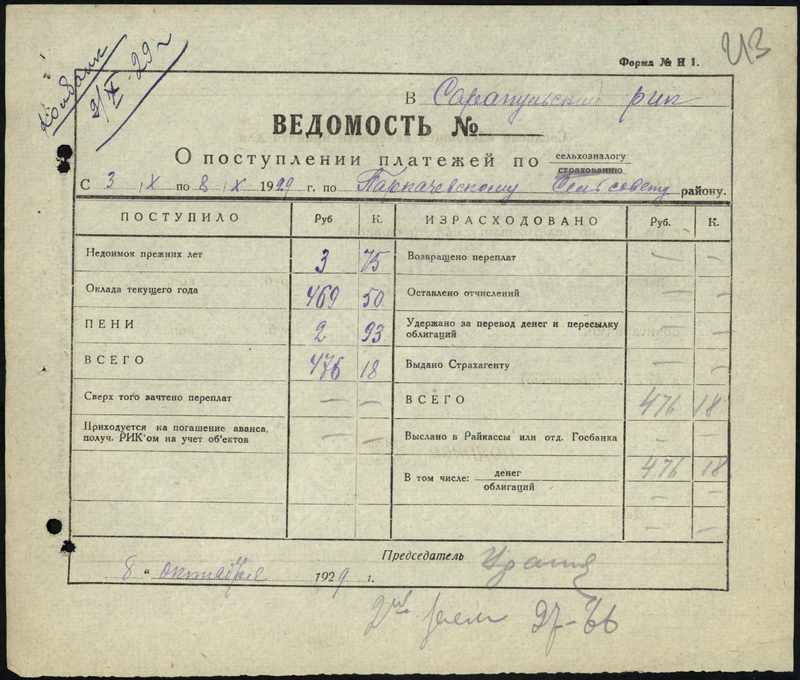 Форма № Н 1.
213
9/X 29 г
В Сарапульский рик
ВЕДОМОСТЬ №
О поступлении платежей по сельхозналогу
страхованию
С 3 IX по 8 IX 1929 г. по Паркачевскому Сельсовету району.
ПОСТУПИЛО Руб К. ИЗРАСХОДОВАНО Руб. К.
Недоимок прежних лет 3 75 Возвращено переплат — —
Оклада текущего года 469 50 Оставлено отчислений — —
ПЕНИ 2 93 Удержано за перевод денег и пересылку
облигаций — —
ВСЕГО 476 18 Выдано Страхагенту — —
Сверх того зачтено переплат — — ВСЕГО 476 18
Приходуется на погашение аванса,
получ. РИК'ом на учет об'ектов — — Выслано в Райкассы или отд. Госбанка — —
В том числе: денег 476 18
облигаций — —
— —
Председатель
8 " октября 1929 г.
27-66